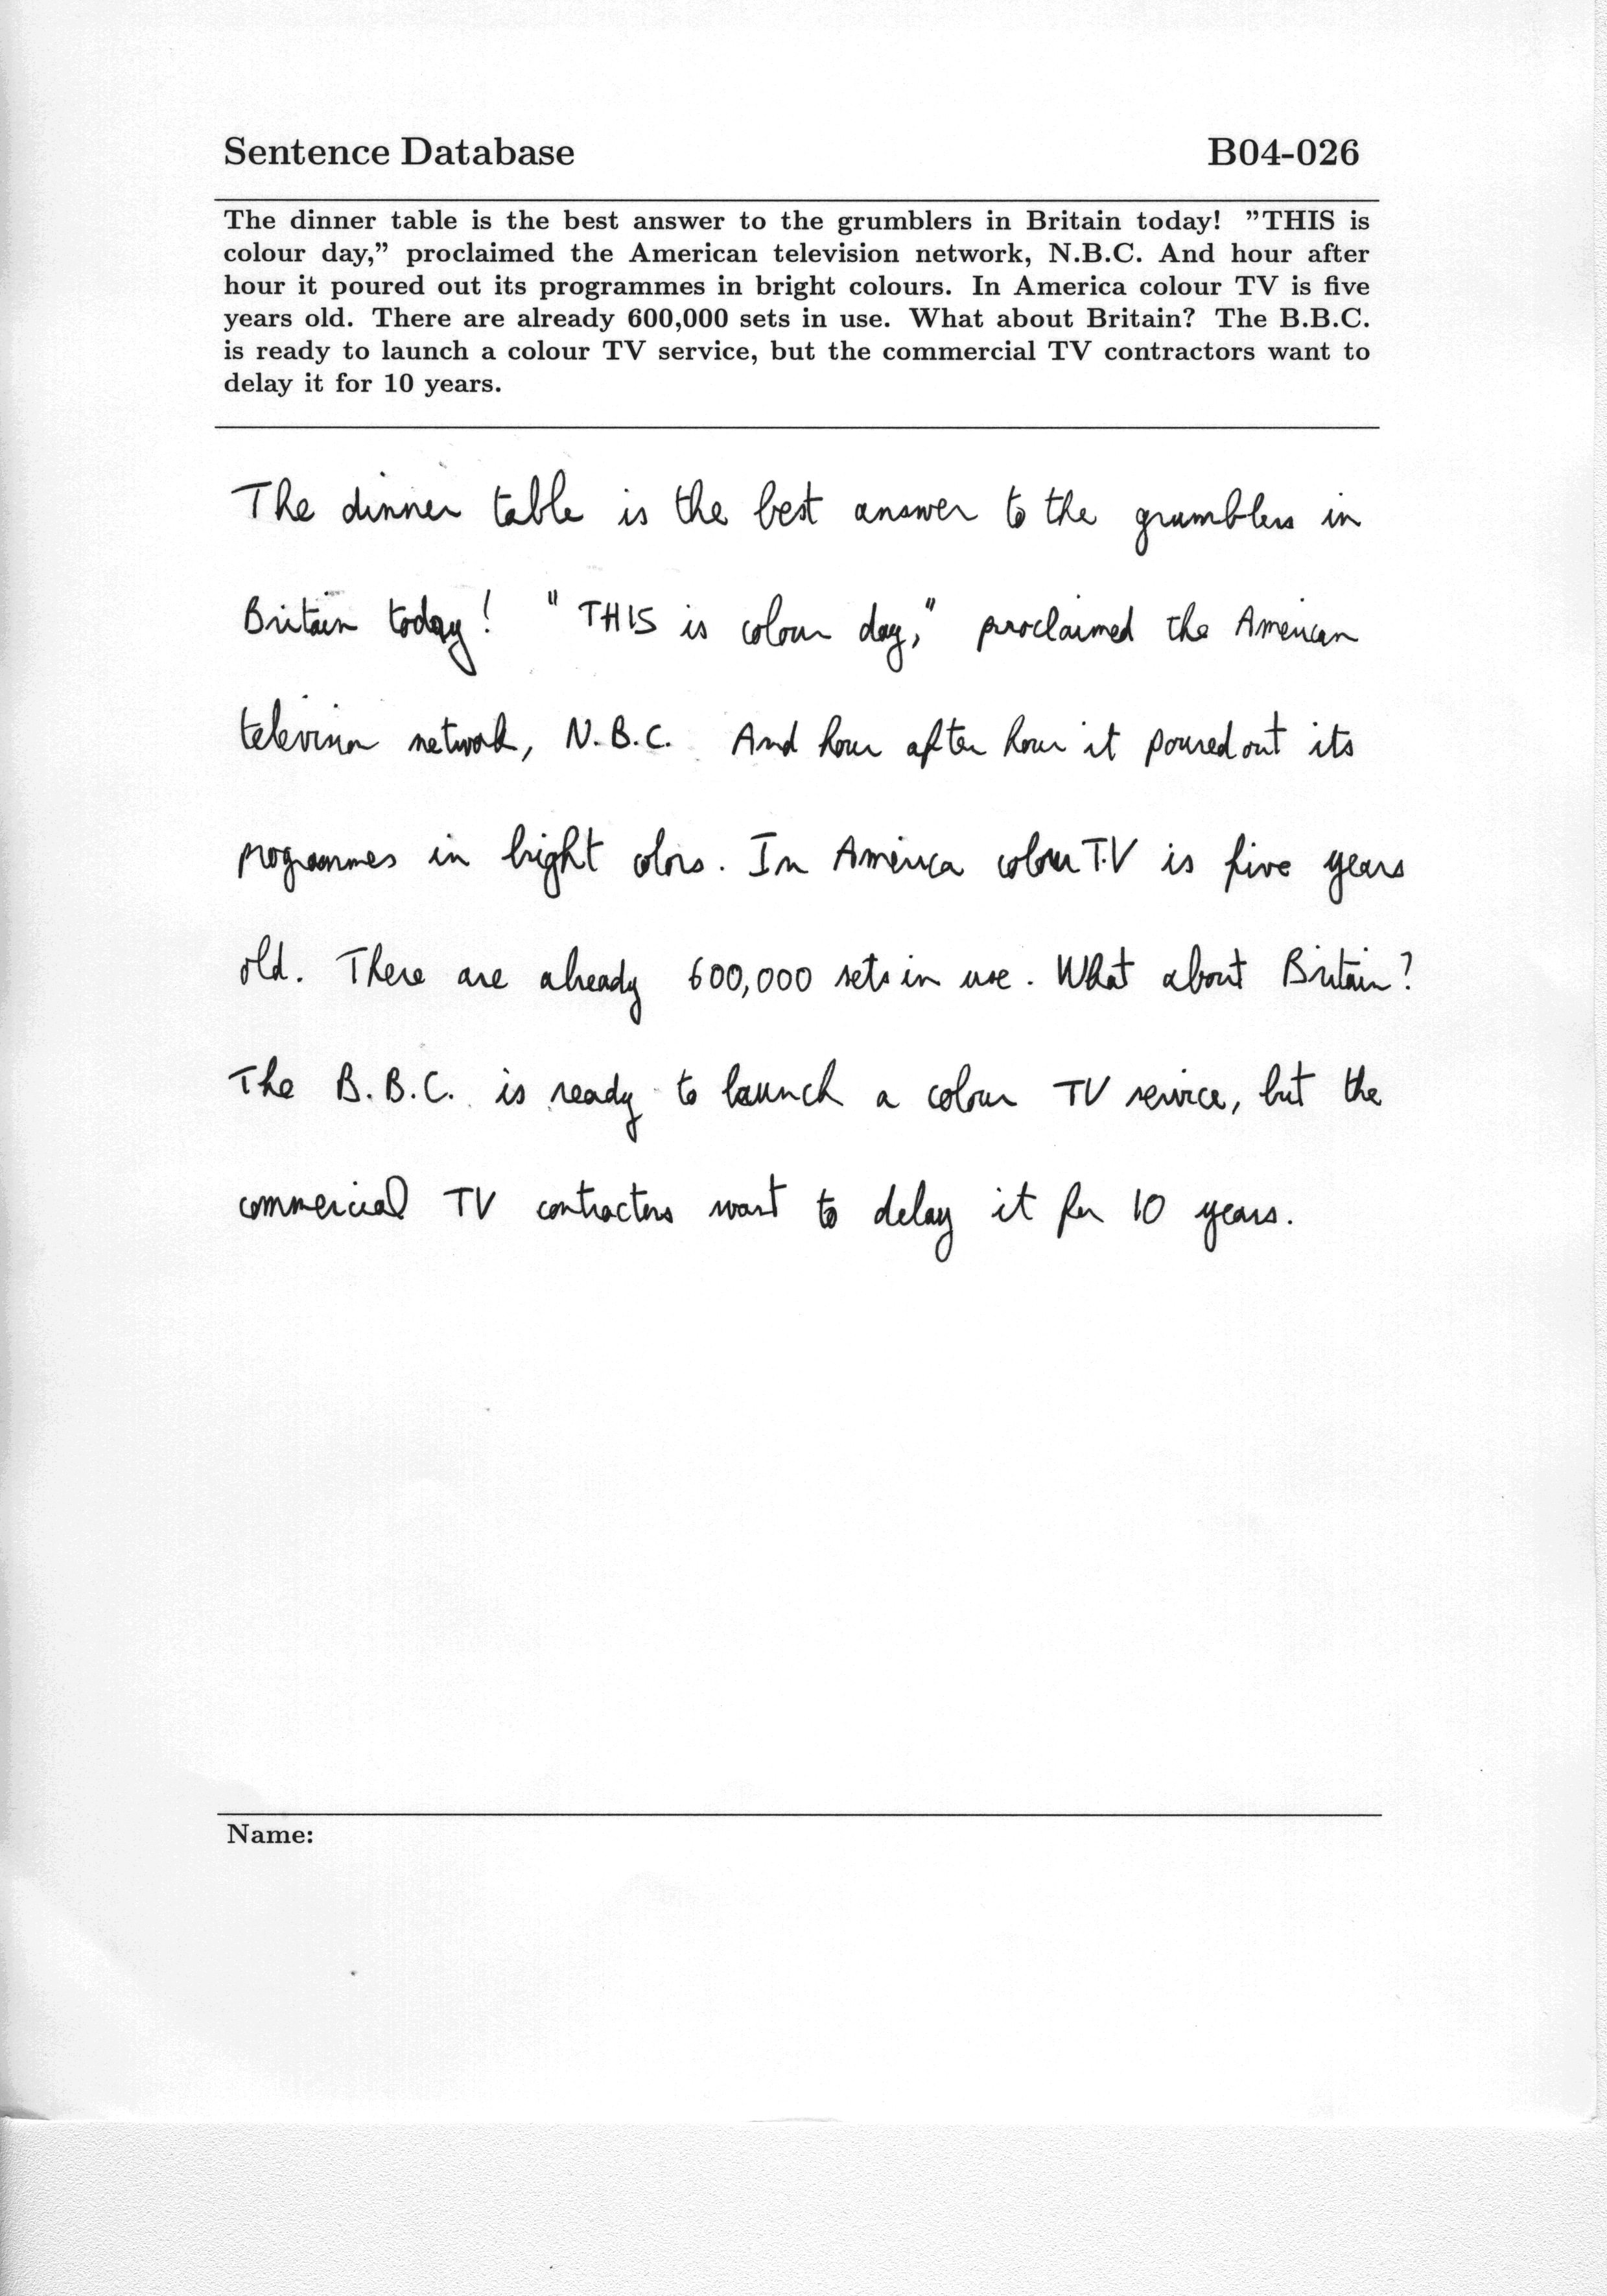 Sentence Database B04-026
The dinner table is the best answer to the grumblers in Britain today! "THIS is
colour day," proclaimed the American television network, N.B.C. And hour after
hour it poured out its programmes in bright colours. In America colour TV is five
years old. There are already 600,000 sets in use. What about Britain? The B.B.C.
is ready to launch a colour TV service, but the commercial TV contractors want to
delay it for 10 years.
The dinner table is the best answer to the grumblers in
Britain today! "THIS is colour day," proclaimed the American
television network, N.B.C. And hour after hour it poured out its
programmes in bright colors. In America colour T.V is five years
old. There are already 600,000 sets in use. What about Britain?
The B.B.C. is ready to launch a colour TV service, but the
commercial TV contractors want to delay it for 10 years.
Name: